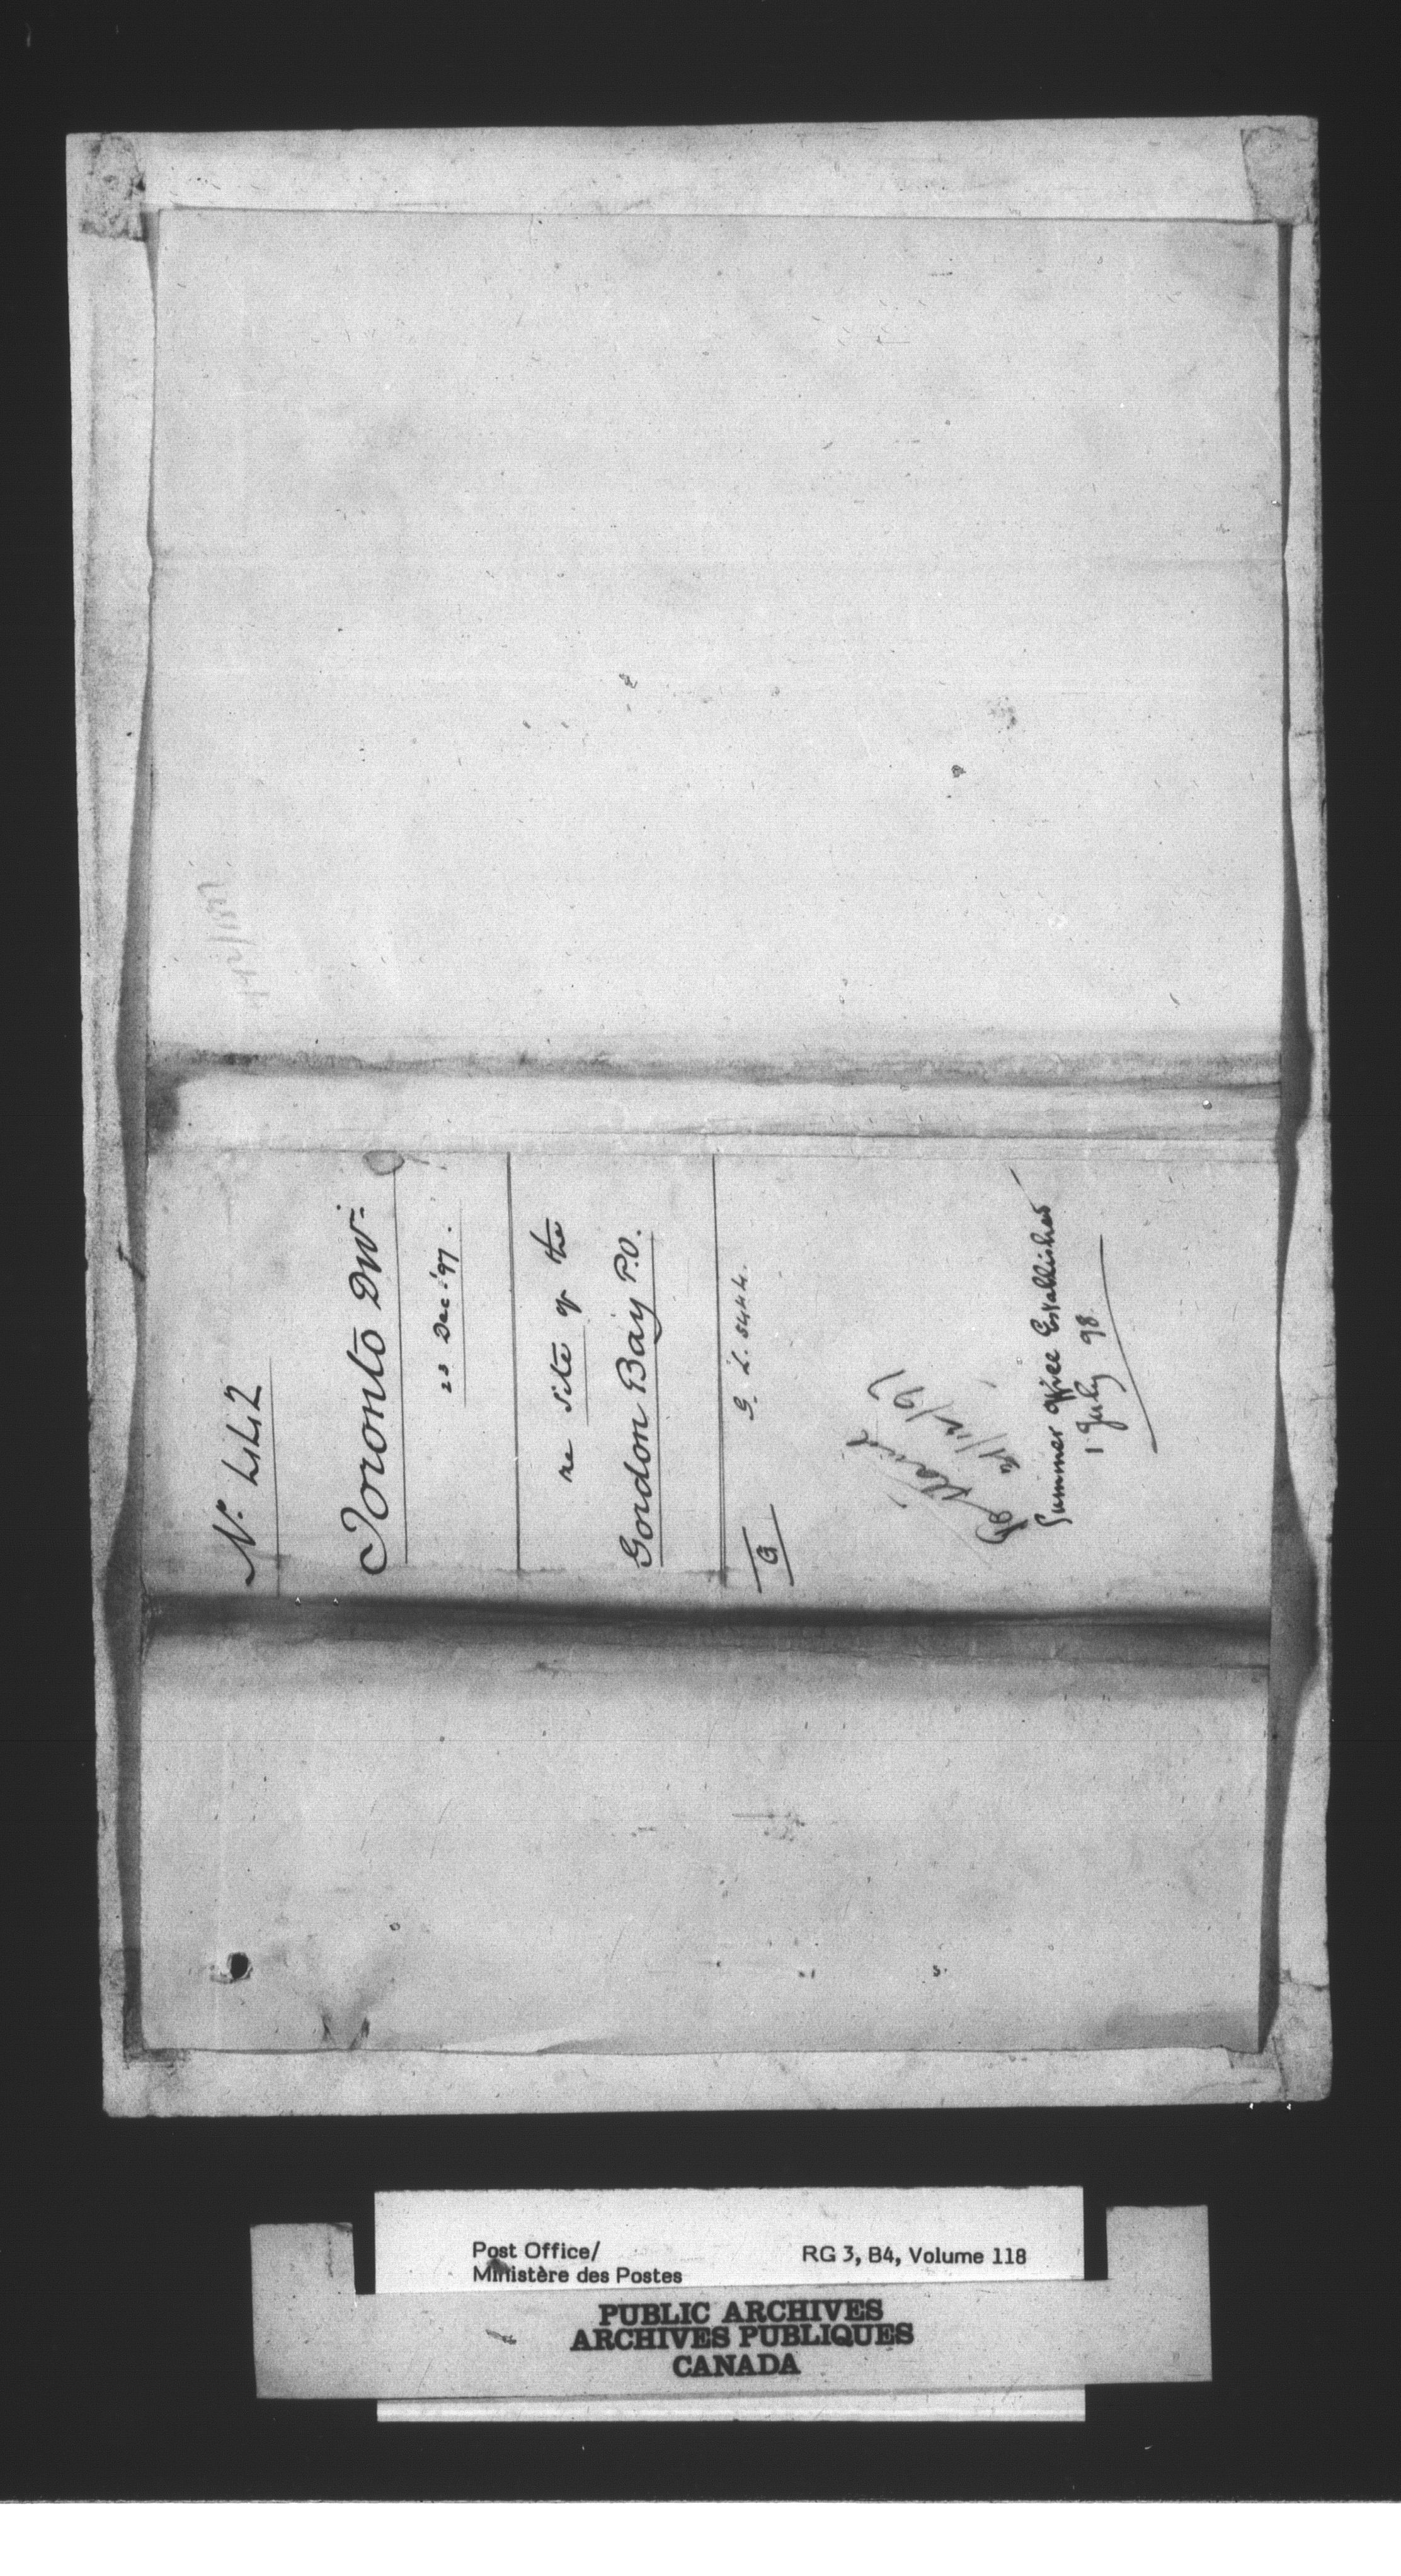 No. 442
Toronto Divn:
23 Dec. '97.
re site of the
Gordon Bay P.O.
G. L. 5444.
G
31/12/97
Summer Office Established
1 July 98
Post Office/
Ministère des Postes
RG 3, B4, Volume 118
PUBLIC ARCHIVES
ARCHIVES PUBLIQUES
CANADA